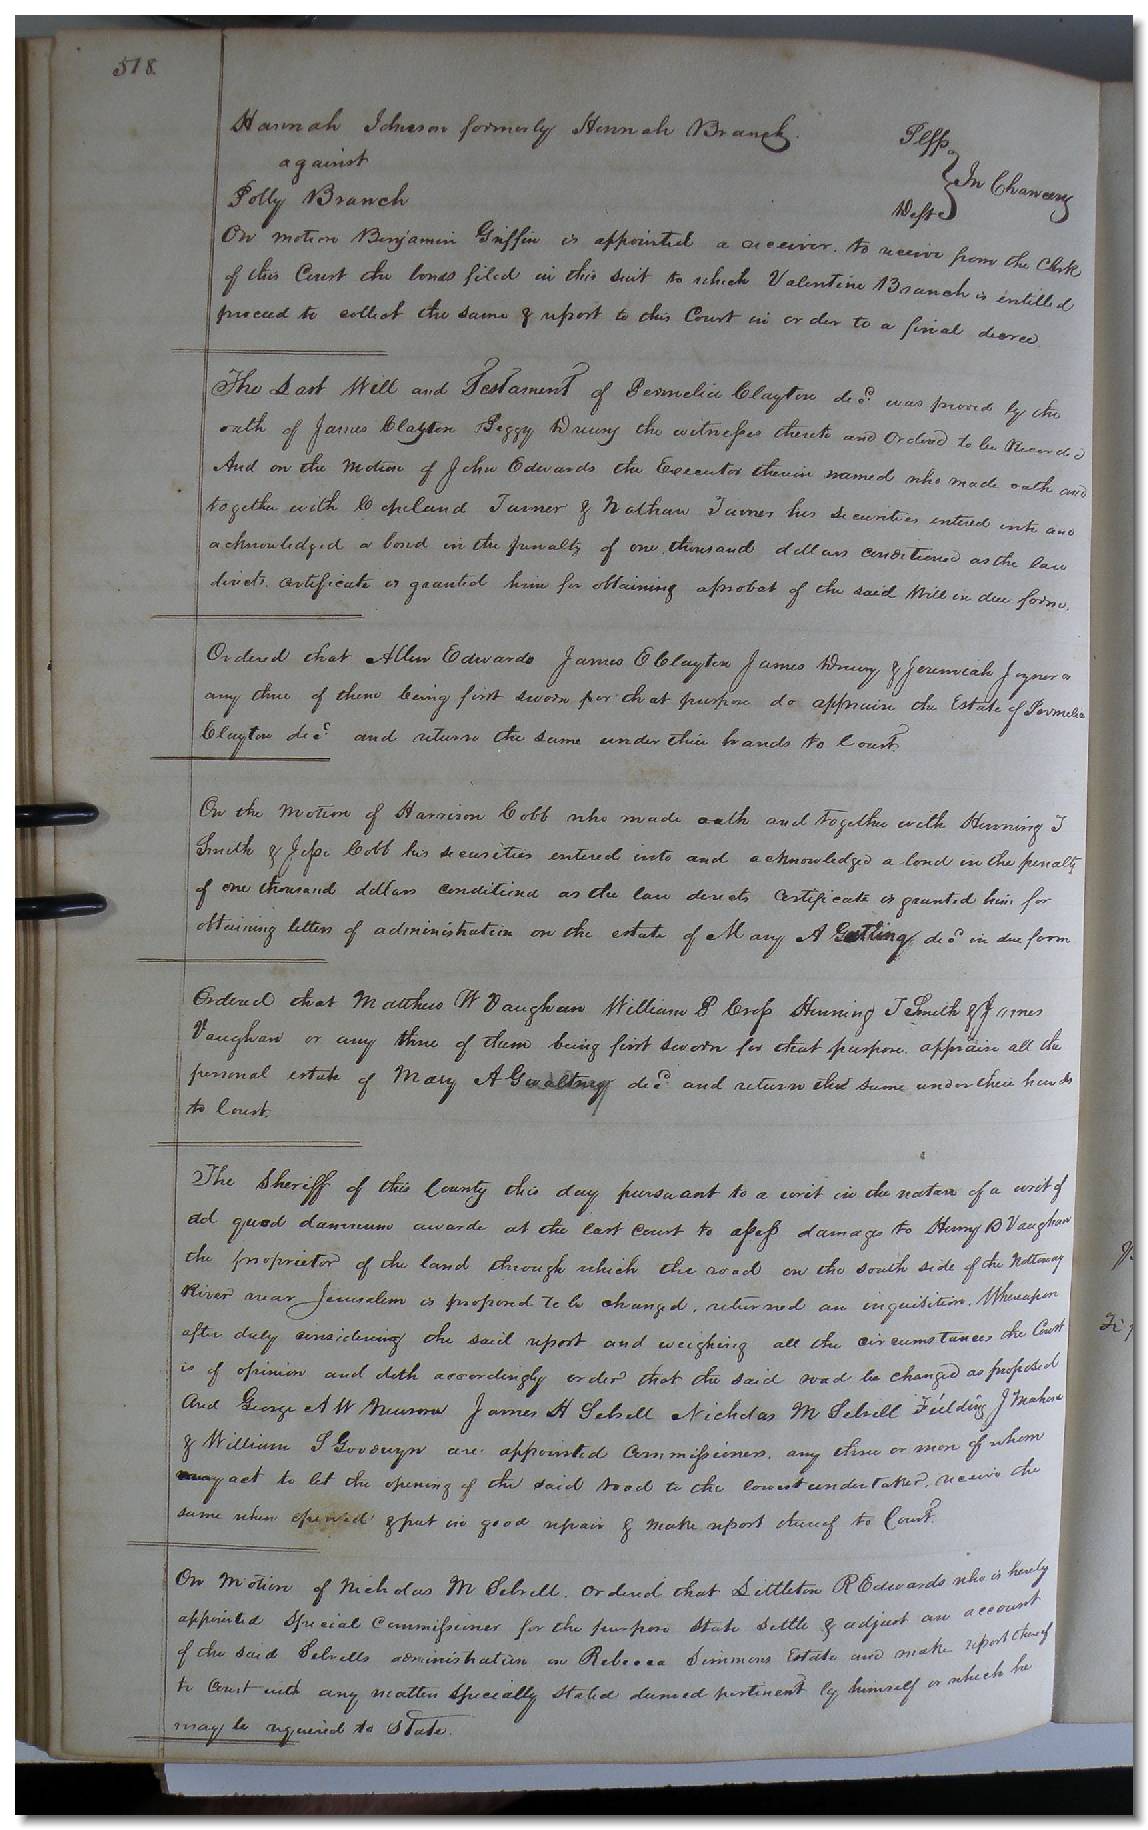 518
Hannah Johnson formerly Hannah Branch Plff
against In Chancery
Polly Branch Deft
On motion Benjamin Griffin is appointed a receiver to receive from the Clerk
of this Court the bonds filed in this suit to which Valentine Branch is entitled
proceed to collect the same & report to this Court in order to a final decree.
The Last Will and Testament of Permelia Clayton decd. was proved by the
oath of James Clayton Peggy Drewry the witnesses thereto and Ordered to be Recorded
And on the Motion of John Edwards the Executor therein named who made oath and
together with Copeland Turner & Nathan Turner his securities entered into and
acknowledged a bond in the penalty of one thousand dollars conditioned as the law
directs certificate is granted him for obtaining a probat of the said Will in due form.
Ordered that Allen Edwards James E Clayton James Drewry & Jeremiah Joyner or
any three of them being first sworn for that purpose do appraise the Estate of Permelia
Clayton decd. and return the same under their hands to Court.
On the Motion of Harrison Cobb who made oath and together with Henning T
Smith & Jesse Cobb his securities entered into and acknowledged a bond in the penalty
of one thousand dollars conditioned as the law directs certificate is granted him for
obtaining letters of administration on the estate of Mary A decd. in due form
Ordered that Matthew W Vaughan William B Cross Henning T Smith & James
Vaughan or any three of them being first sworn for that purpose appraise all the
personal estate of Mary A Gwaltney decd. and return the same under their hands
to Court.
The Sheriff of this County this day pursuant to a writ in the nature of a writ of
ad quod damnum awarde at the last Court to assess damage to Henry B Vaughan
the proprietor of the land through which the road on the south side of the Nottoway
River near Jerusalem is proposed to be changed, returned an inquisition. Whereupon
after duly considering the said report and weighing all the circumstances the Court
is of opinion and doth accordingly order that the said road be changed as proposed
And George A W Newsom James H Sebrell Nicholas M Sebrell Fielding J Mahone
& William S Goodwyn are appointed Commissioners, any three or more of whom
may act to let the opening of the said road to the lowest undertaker, receive the
same when opened & put in good repair & make report thereof to Court.
On Motion of Nicholas M Sebrell. Ordered that Littleton R Edwards who is hereby
appointed Special Commissioner for the purpose State Settle & adjust an account
of the said Sebrells administration on Rebecca Simmons Estate and make report thereof
to Court with any matters Specially Stated deemed pertinent by himself or which he
may be required to State.